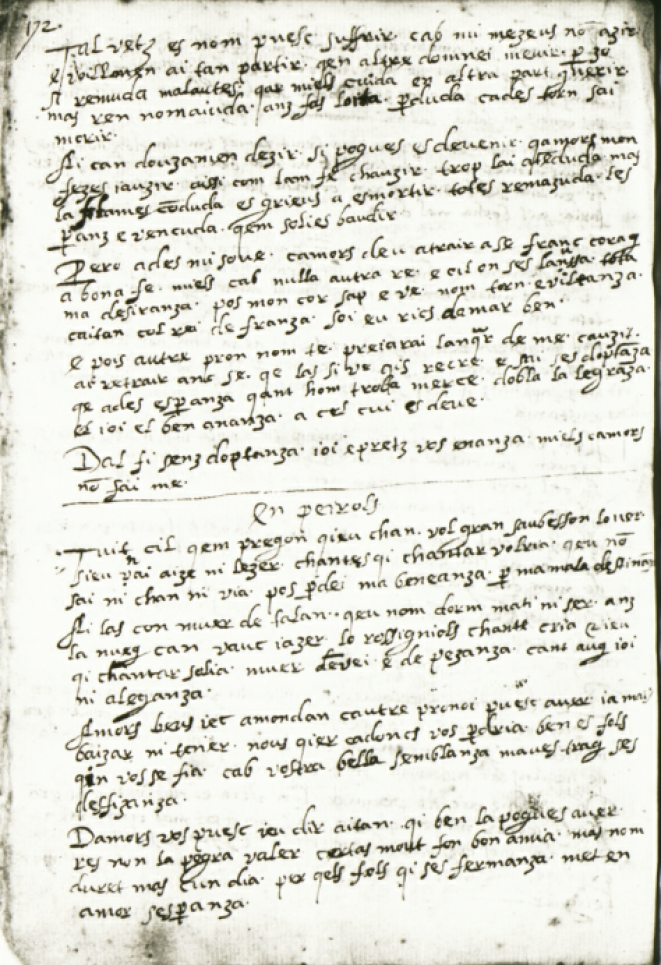 172
Tal vetz es nom puesc suffrir. cab mi mezeus no azir
e voillonen ai tan partir. qen altre domnei meuir. per zo
si remuda malautes. qar miels cuida en altra part querir.
mas ren nomaiuda. anz fas perduda cades torn sai
merir.
Ai can douzamen dezir. si pogues esdevenir. qamors mon
fezes iauzir. aissi com lam fe chauzir. trop lai atteduda mas
la flames conduda es grieus a esmortir. totes remazuda. les
panz e rencuda. qem solies baudir.
Pero ades mi sove. camors deu atrair a se franc corag
a bona fe. miels cab nulla autra re. e cil on ses tota
ma desiranza. pos mon cor sap e ve. nom torn eviltanza.
caitan col rei de franza. soi eu rics damar ben.
e pois autre pron nom te. preiarai lanqar de me cauzir.
ac retrair anc se. qe las si ve qis recre. e mi ses doptaza
qe ades esperanza qant hom troba merce. dobla la legraza.
el ioi el ben ananza. a cel cui esdeve.
Dal fi senz doptanza. ioi e pretz vos enanza miels camors
no sai me.
En peirols
Tuit cil qem pregon qieu chan. vol gran saubesson lo ver.
sieu nai aize ni lezer. chantes qi chantar volria. qeu no
sai ni chan ni via. pos perdei ma beneanza. per ma mala destinan
Ai las con muer de talan. qeu nom dorm mati ni ser. anz
la nueg can vauc iazer. lo rossigniols chante cria e ieu
qi chantar solia. muer denvei. e de pezanza. cant aug ioi
ni alegranza.
Amors beus iec amondan cautre pronoi puesc aver ia mai
baizar ni tener. nous qier cadoncs vos perdria. ben es fols
qin vos se fia. cab vostra bella semblanza maves trag ses
deffizanza.
Damors vos puesc ieu dir aitan. qi ben la pogues aver
res non la pogra valer certas mout fon bon amia. mas nom
duret mas cun dia. per qels fols qi ses fermanza. met en
amor sesperanza.